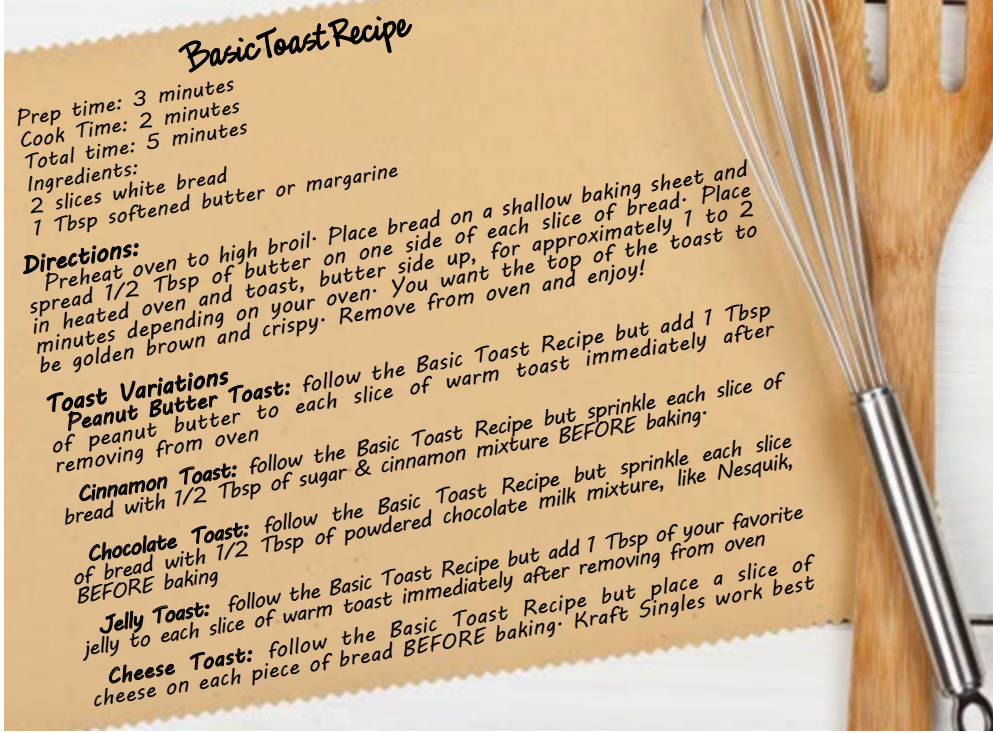 Basic Toast Recipe
Prep time: 3 minutes
Cook Time: 2 minutes
Total time: 5 minutes
Ingredients:
2 slices white bread
1 Tbsp softened butter or margarine
Directions:
Preheat oven to high broil. Place bread on a shallow baking sheet and
spread 1/2 Tbsp of butter on one side of each slice of bread. Place
in heated oven and toast, butter side up, for approximately 1 to 2
minutes depending on your oven. You want the top of the toast to
be golden brown and crispy. Remove from oven and enjoy!
Toast Variations
Peanut Butter Toast: follow the Basic Toast Recipe but add 1 Tbsp
of peanut butter to each slice of warm toast immediately after
removing from oven
Cinnamon Toast: follow the Basic Toast Recipe but sprinkle each slice of
bread with 1/2 Tbsp of sugar & cinnamon mixture BEFORE baking.
Chocolate Toast: follow the Basic Toast Recipe but sprinkle each slice
of bread with 1/2 Tbsp of powdered chocolate milk mixture, like Nesquik,
BEFORE baking
Jelly Toast: follow the Basic Toast Recipe but add 1 Tbsp of your favorite
jelly to each slice of warm toast immediately after removing from oven
Cheese Toast: follow the Basic Toast Recipe but place a slice of
cheese on each piece of bread BEFORE baking. Kraft Singles work best